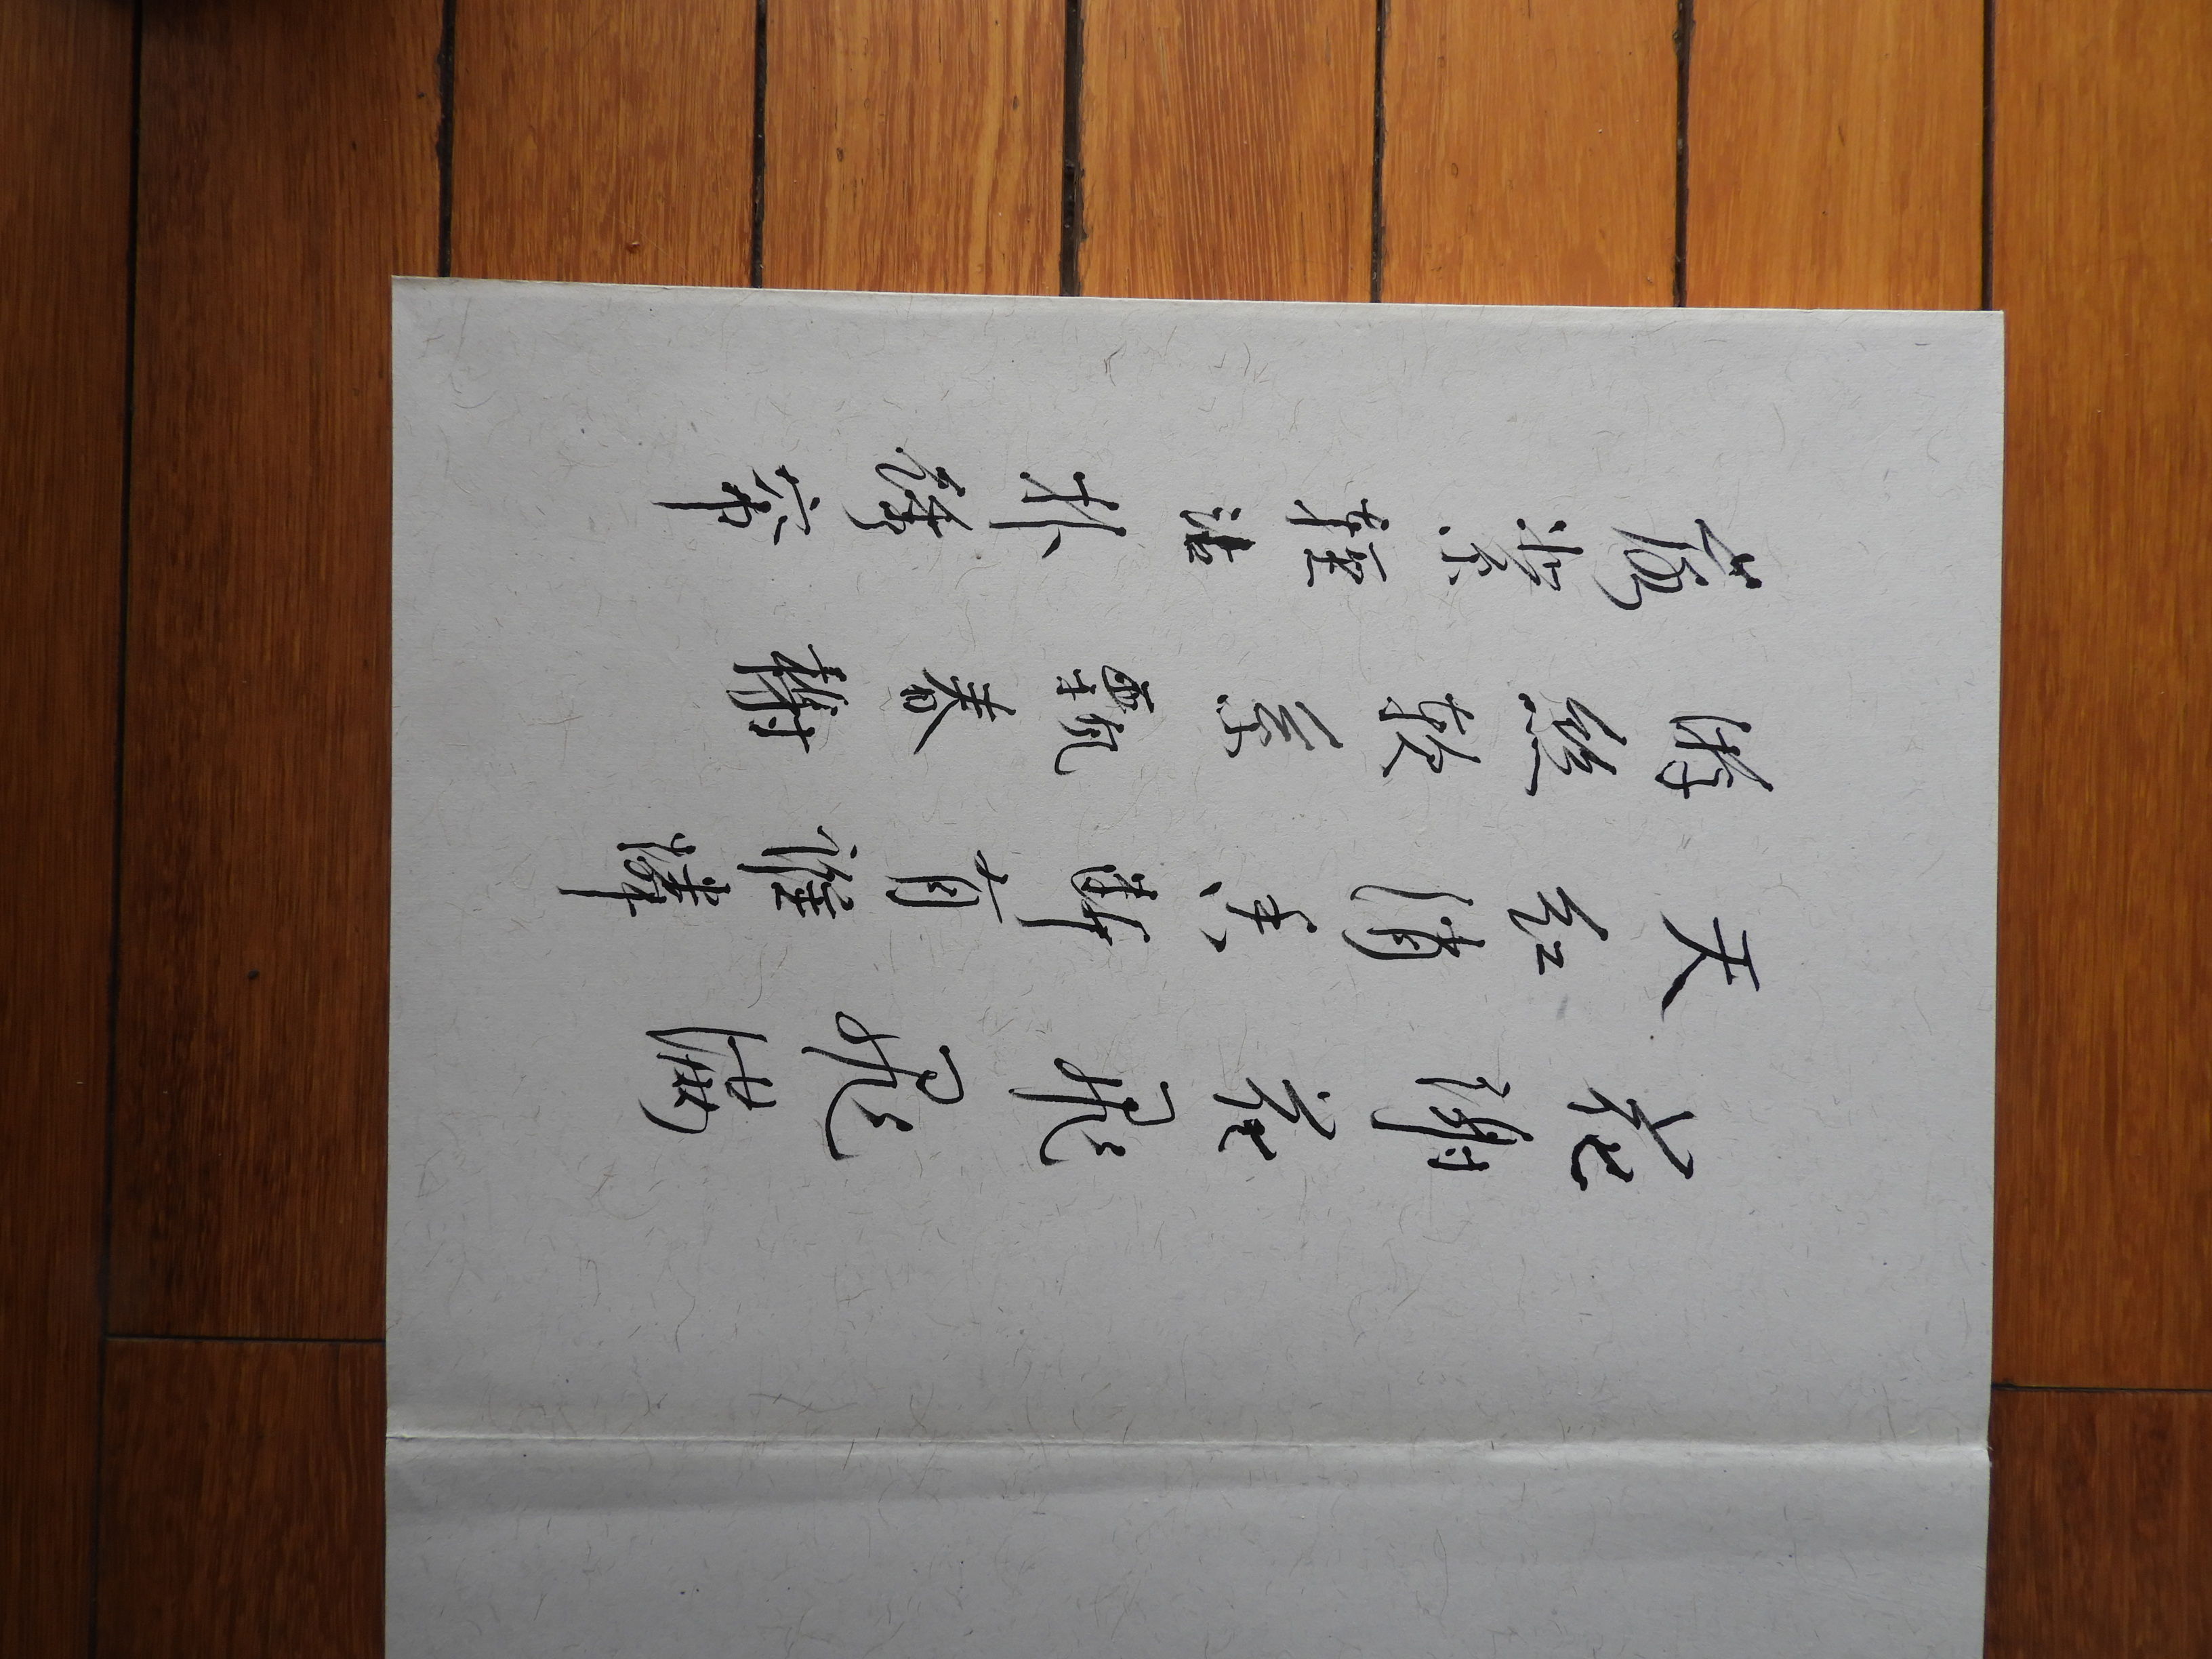 花謝花飛飛滿
天紅消香斷有誰憐
游絲軟系飄春榭
落絮輕沾扑繡帘